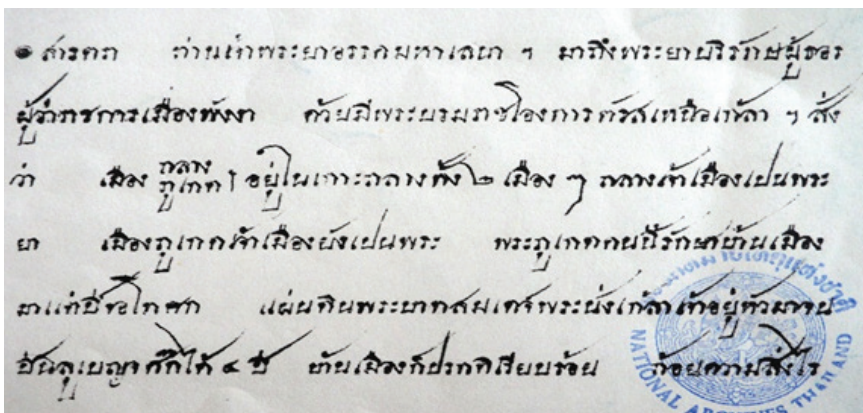 ๏ สารตรา ท่านเจ้าพระยาอรรคมหาเสนา ฯ มาถึงพระยาบริรักษผู้ธอร
ผู้ว่าราชการเมืองพังงา ด้วยมีพระบรมราชโองการตรัสเหนือเกล้า ฯ สั่ง
ว่า เมือง ถลาง ภูเกต อยู่ในเกาะถลางทั้ง ๒ เมือง ๆ ถลางเจ้าเมืองเปนพระ
ยา เมืองภูเกตเจ้าเมืองยังเปนพระ พระภูเกตคนนี้รักษาบ้านเมือง
มาแต่ปีขอโทศก แผ่นดินพระบาทสมเดจ์พระนั่งเกล้าเจ้าอยู่หัวมาจน
ปีฉลูเบญจศ์กได้ ๔ ปี บ้านเมืองก็ปรกติเรียบร้อย ถ้อยความสิ่งไร
หอจดหมายเหตุแห่งชาติ
NATIONAL ARCHIVES THAILAND